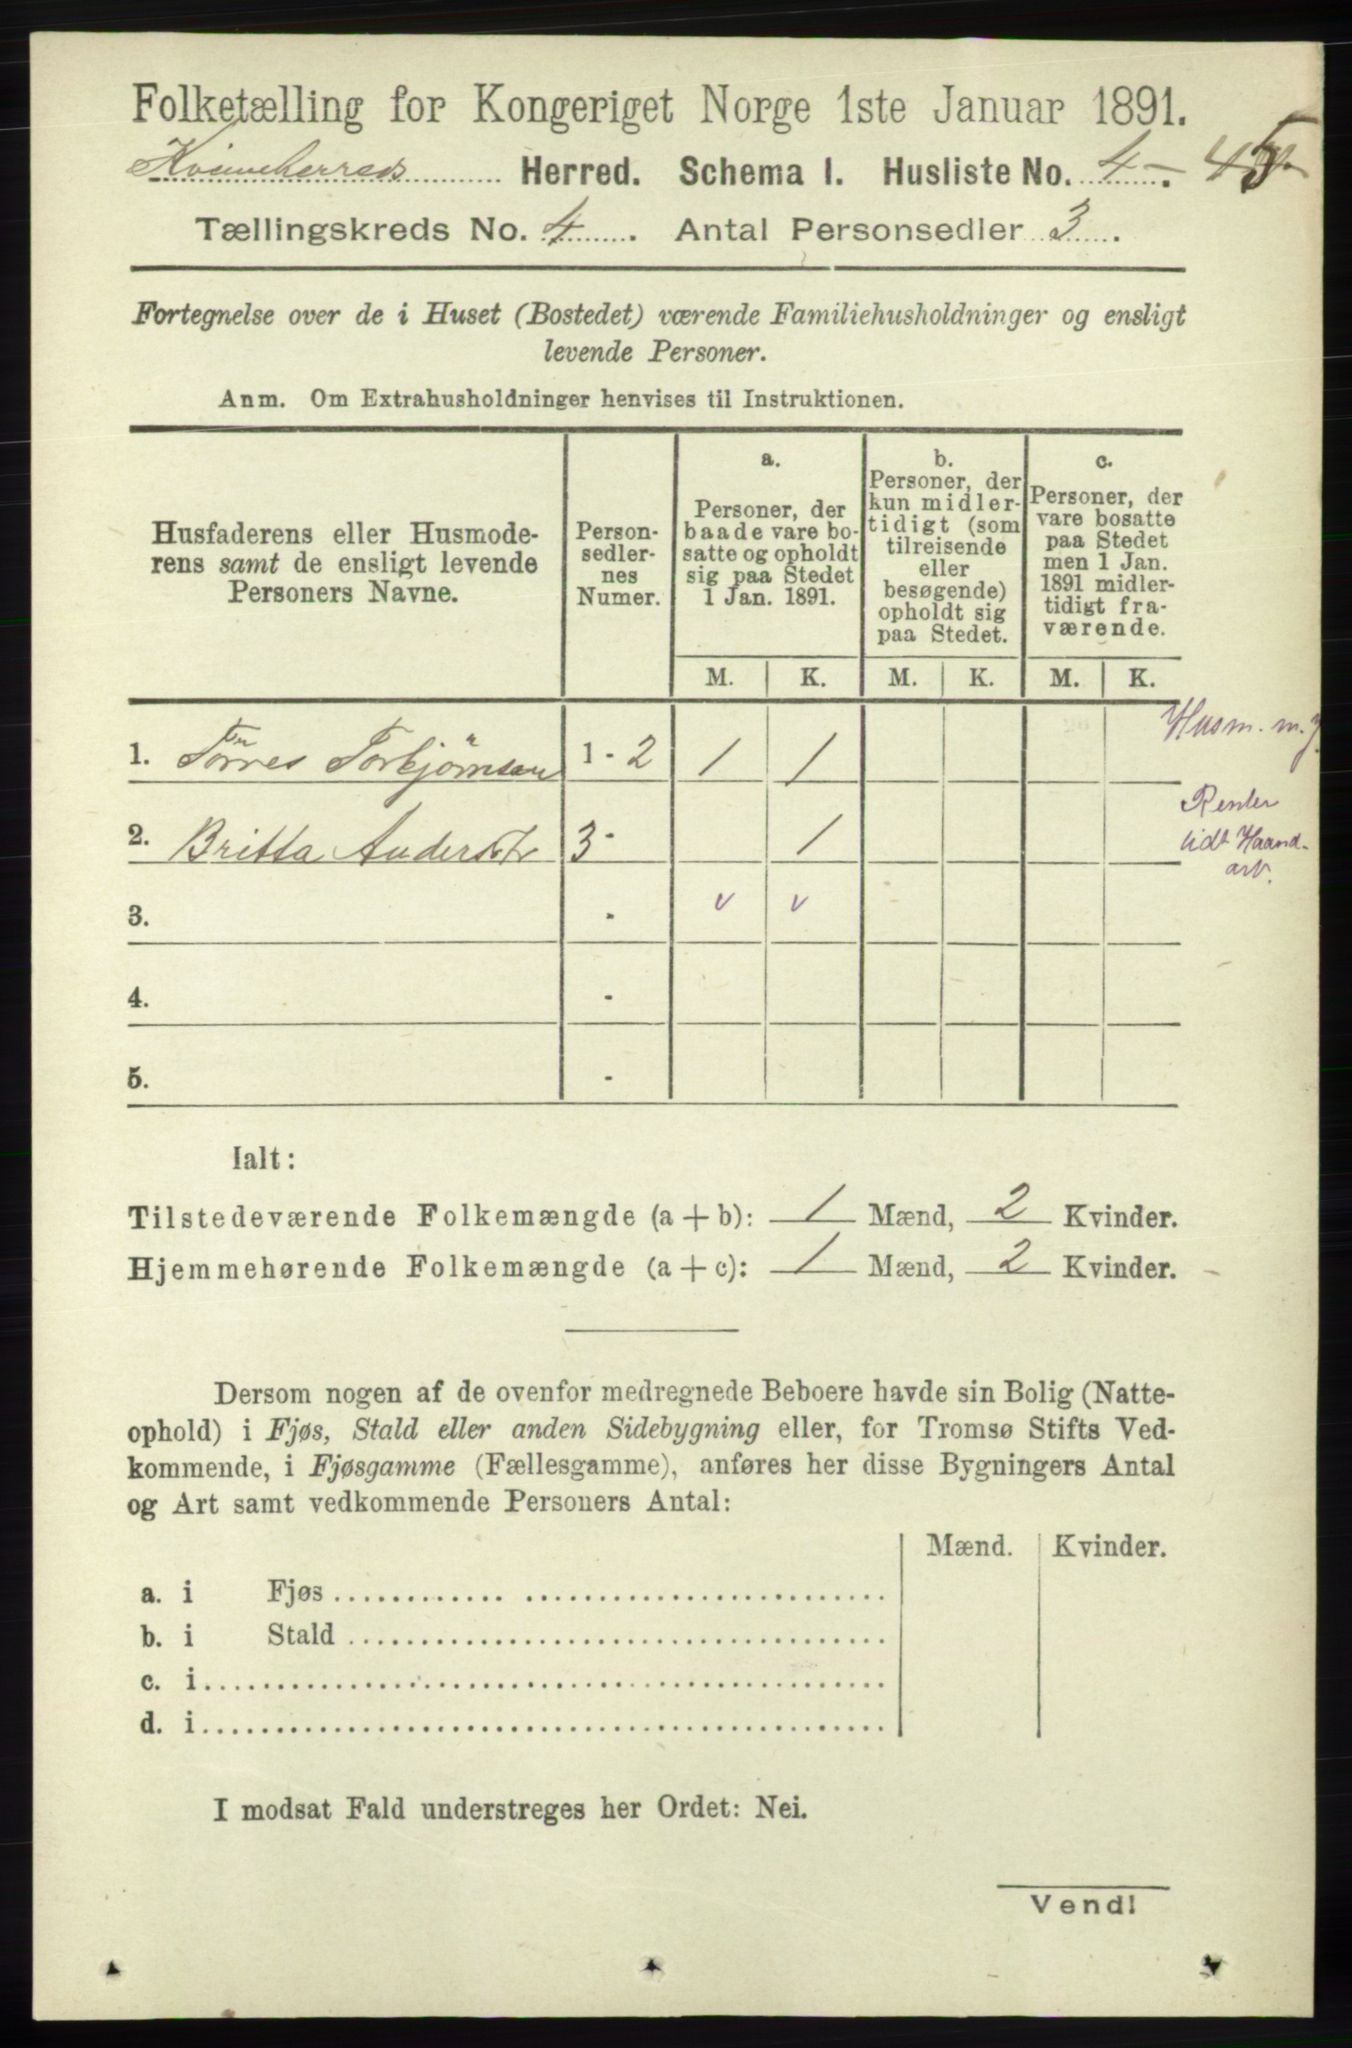 Folketælling for Kongeriget Norge 1ste Januar 1891.
Kvinneherreds Herred. Schema I. Husliste No. 4 -.
Tællingskreds No. 4. Antal Personsedler 3.
Fortegnelse over de i Huset (Bostedet) værende Familiehusholdninger og ensligt
levende Personer.
Anm. Om Extrahusholdninger henvises til Instruktionen.
Husfaderens eller Husmode-
rens samt de ensligt levende
Personers Navne.
Person-
sedler-
nes
Numer.
a.
Personer, der
baade vare bo-
satte og opholdt
sig paa Stedet
1 Jan. 1891.
b.
Personer, der
kun midler-
tidigt (som
tilreisende
eller
besøgende)
opholdt sig
paa Stedet.
c.
Personer, der
vare bosatte
paa Stedet
men 1 Jan.
1891 midler-
tidigt fra-
værende.
M. K. M. K. M. K.
1. Tørres Torbjørnsen 1 - 2 1 1 Husm. m. j.
2. Britta Andersdtr 3 - 1 Renter
lidt Haand-
arb.
3. - v v
4. -
5. -
Ialt:
Tilstedeværende Folkemængde (a + b): 1 Mænd, 2 Kvinder.
Hjemmehørende Folkemængde (a + c): 1 Mænd, 2 Kvinder.
Dersom nogen af de ovenfor medregnede Beboere havde sin Bolig (Natte-
ophold) i Fjøs, Stald eller anden Sidebygning eller, for Tromsø Stifts Ved-
kommende, i Fjøsgamme (Fællesgamme), anføres her disse Bygningers Antal
og Art samt vedkommende Personers Antal:
Mænd. Kvinder.
a. i Fjøs
b. i Stald
c. i
d. i
I modsat Fald understreges her Ordet: Nei.
Vend!